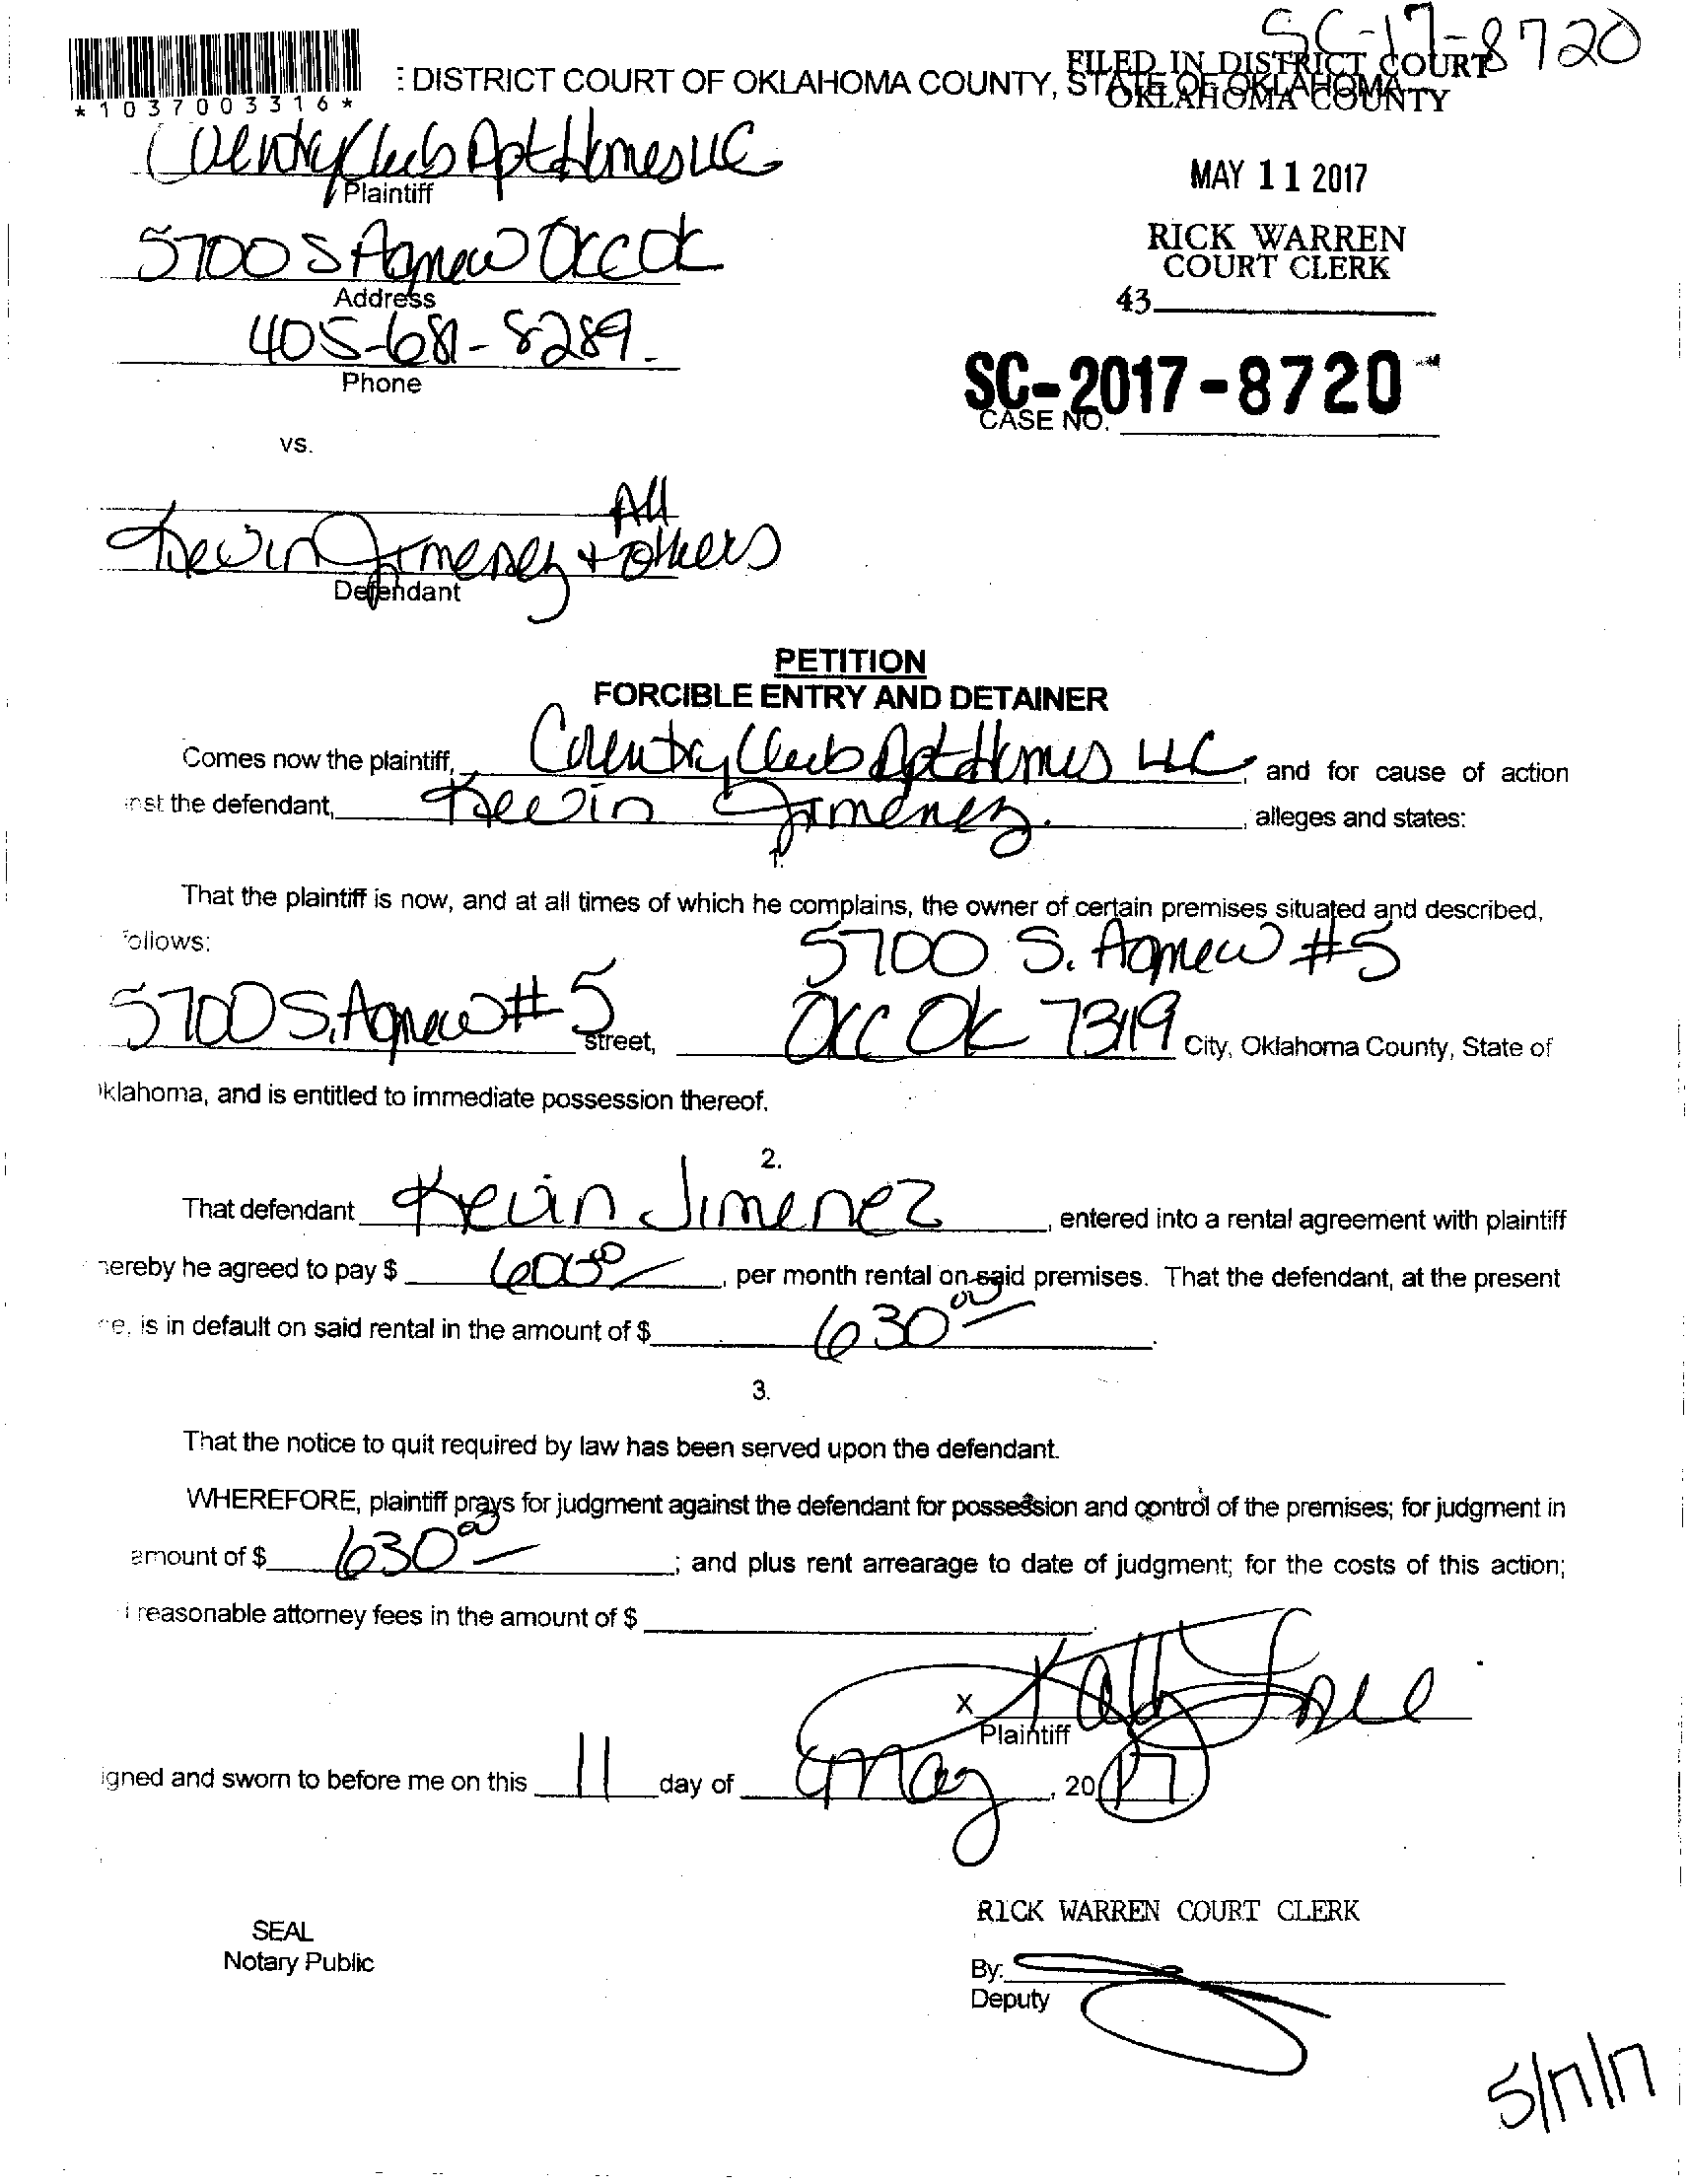 SC-17-8720
: DISTRICT COURT OF OKLAHOMA COUNTY, STATE OF OKLAHOMA
FILED IN DISTRICT COURT
OKLAHOMA COUNTY
*1037003316*
Country Club Apt Homes LLC
Plaintiff
MAY 11 2017
5700 S Agnew OKC OK
Address
RICK WARREN
COURT CLERK
43
405-681-8289
Phone
SC-2017-8720
CASE NO.
vs.
All
Kevin Jimenez + others
Defendant
PETITION
FORCIBLE ENTRY AND DETAINER
Comes now the plaintiff, Country Club Apt Homes LLC, and for cause of action
inst the defendant, Kevin Jimenez, alleges and states:
1.
That the plaintiff is now, and at all times of which he complains, the owner of certain premises situated and described,
follows: 5700 S. Agnew #5
5700 S. Agnew #5 Street, OKC OK 73119 City, Oklahoma County, State of
klahoma, and is entitled to immediate possession thereof.
2.
That defendant Kevin Jimenez, entered into a rental agreement with plaintiff
hereby he agreed to pay $ 600 00, per month rental on said premises. That the defendant, at the present
e, is in default on said rental in the amount of $ 630 00.
3.
That the notice to quit required by law has been served upon the defendant.
WHEREFORE, plaintiff prays for judgment against the defendant for possession and control of the premises; for judgment in
amount of $ 630 00; and plus rent arrearage to date of judgment; for the costs of this action;
reasonable attorney fees in the amount of $
X
Plaintiff
igned and sworn to before me on this 11 day of May, 2017
RICK WARREN COURT CLERK
SEAL
Notary Public
By:
Deputy
5/17/17